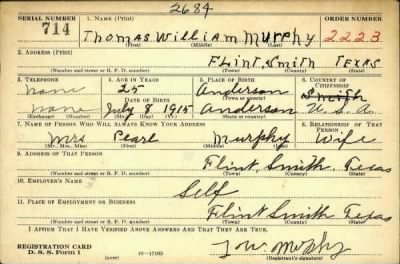 2684
SERIAL NUMBER 1. NAME (Print) ORDER NUMBER
714 Thomas William Murphy 2223
(First) (Middle) (Last)
2. ADDRESS (Print)
Flint, Smith Texas
(Number and street or R. F. D. number) (Town) (County) (State)
3. TELEPHONE 4. AGE IN YEARS 5. PLACE OF BIRTH 6. COUNTRY OF CITIZENSHIP
none 25 Anderson Smith
DATE OF BIRTH (Town or county)
none July 8 1915 Anderson U. S. A.
(Exchange) (Number) (Mo.) (Day) (Yr.) (State or country)
7. NAME OF PERSON WHO WILL ALWAYS KNOW YOUR ADDRESS 8. RELATIONSHIP OF THAT PERSON
Mrs Pearl Murphy Wife
(Mr., Mrs., Miss) (First) (Middle) (Last)
9. ADDRESS OF THAT PERSON
Flint, Smith, Texas
(Number and street or R. F. D. number) (Town) (County) (State)
10. EMPLOYER'S NAME
Self
11. PLACE OF EMPLOYMENT OR BUSINESS
Flint Smith Texas
(Number and street or R. F. D. number) (Town) (County) (State)
I AFFIRM THAT I HAVE VERIFIED ABOVE ANSWERS AND THAT THEY ARE TRUE.
REGISTRATION CARD
D. S. S. Form 1 16—17105 T W. Murphy
(Registrant's signature)